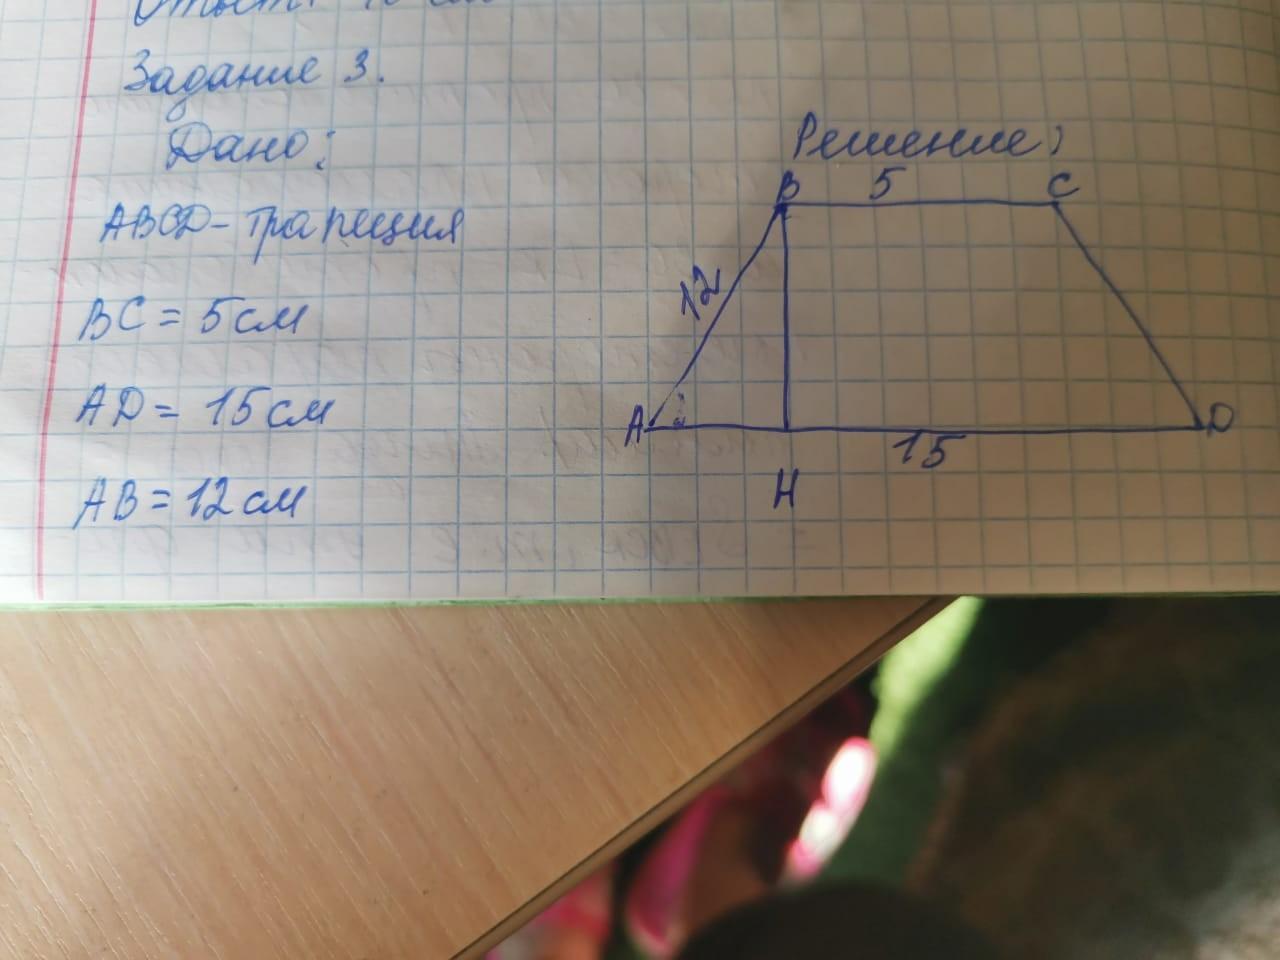 Задание 3.
Дано:
Решение:
ABCD - трапеция
BC = 5 см
AD = 15 см
AB = 12 см
B 5 C
12
A D
15
H